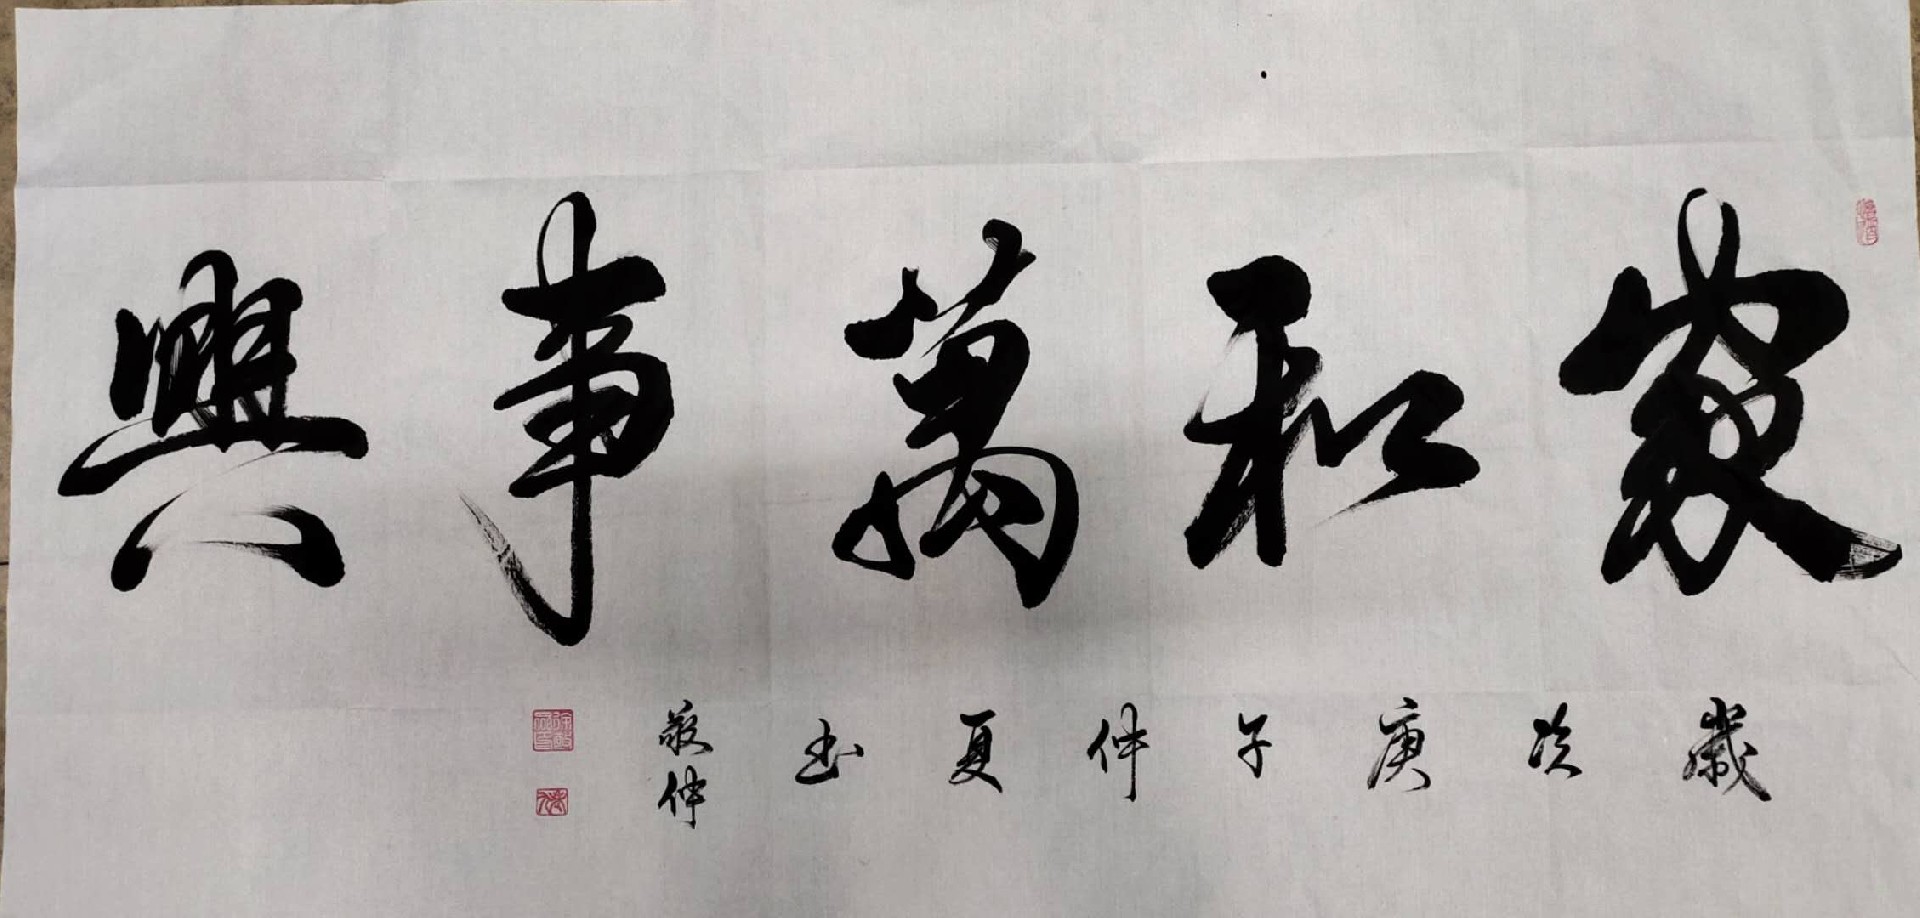 家和萬事興
歲次庚子仲夏书
敬仲